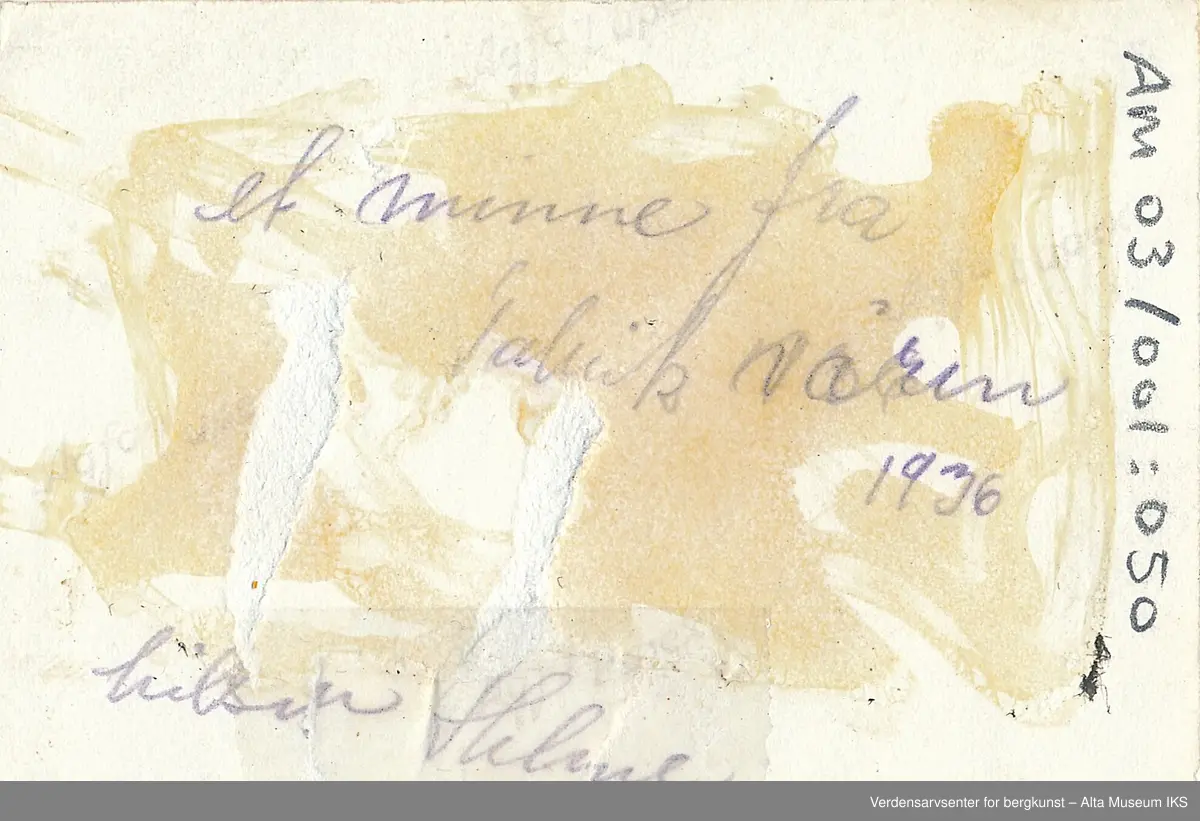 et minne fra
våren
1936
hilsen
AM 03/001:050
Verdensarvsenter for bergkunst – Alta Museum IKS